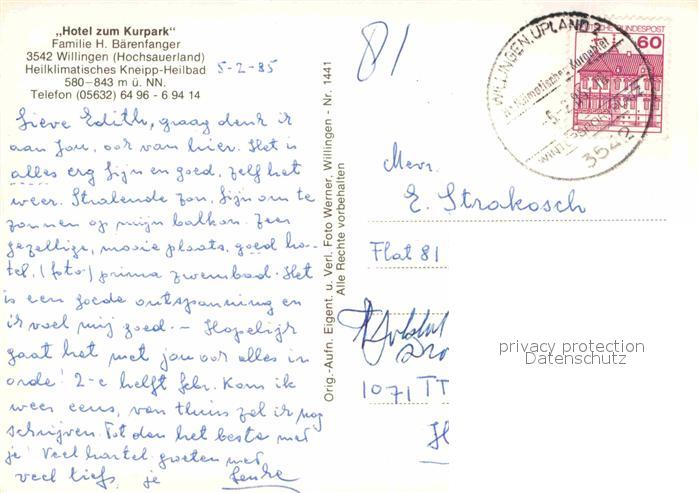 „Hotel zum Kurpark"
Familie H. Bärenfanger
3542 Willingen (Hochsauerland)
Heilklimatisches Kneipp-Heilbad
580–843 m ü. NN.
Telefon (05632) 64 96 - 6 94 14
5-2-85
Lieve Edith, graag denk ik
aan jou, ook van hier. Het is
alles erg fijn en goed, zelf het
weer. Stralende zon, fijn om te
zonnen op mijn balkon. Zeer
gezellige, mooie plaats, goed ho-
tel, (foto) prima zwembad. Het
is een goede ontspanning en
ik voel mij goed. – Hopelijk
gaat het met jou ook alles in
orde! 2-e helft febr. kom ik
weer eens, van thuis zal ik nog
schrijven. Tot dan het beste met
je! Veel hartel. groeten met
veel liefs, je
Orig.-Aufn. Eigent. u. Verl. Foto Werner, Willingen - Nr. 1441
Alle Rechte vorbehalten
81
WILLINGEN, UPLAND 2
Heilklimatischer Kurgebiet
3542
DEUTSCHE BUNDESPOST
60
Mevr.
E. Strakosch
Flat 81
1071 TT
privacy protection
Datenschutz